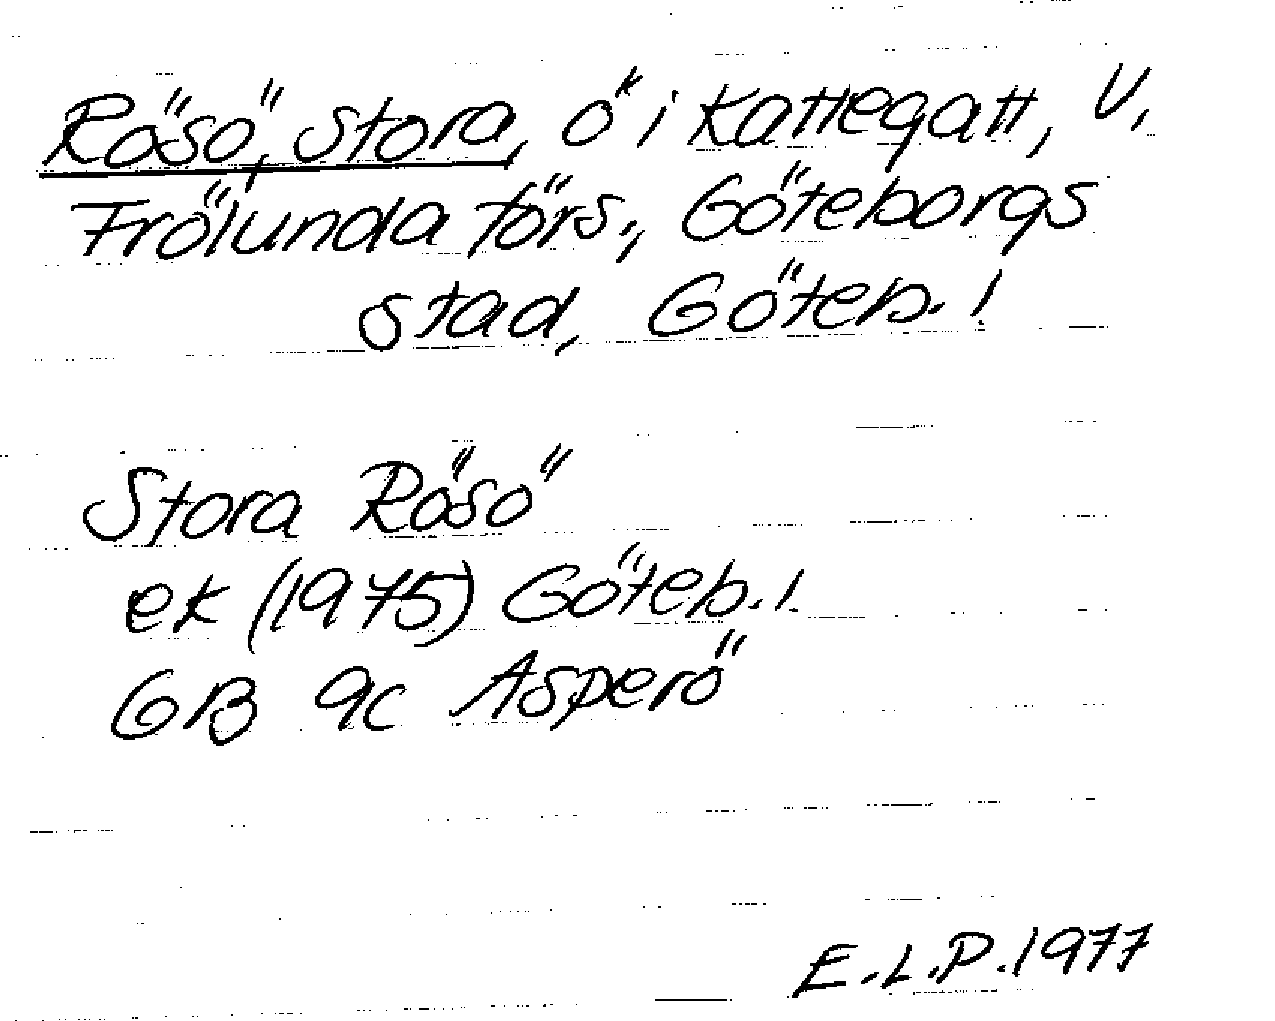 Rösö, Stora, ö i Kattegatt, V.
Frölunda förs., Göteborgs
stad, Göteb. !
Stora Rösö
ek (1975) Göteb. !
GB 9c Asperö
E.L.P. 1977